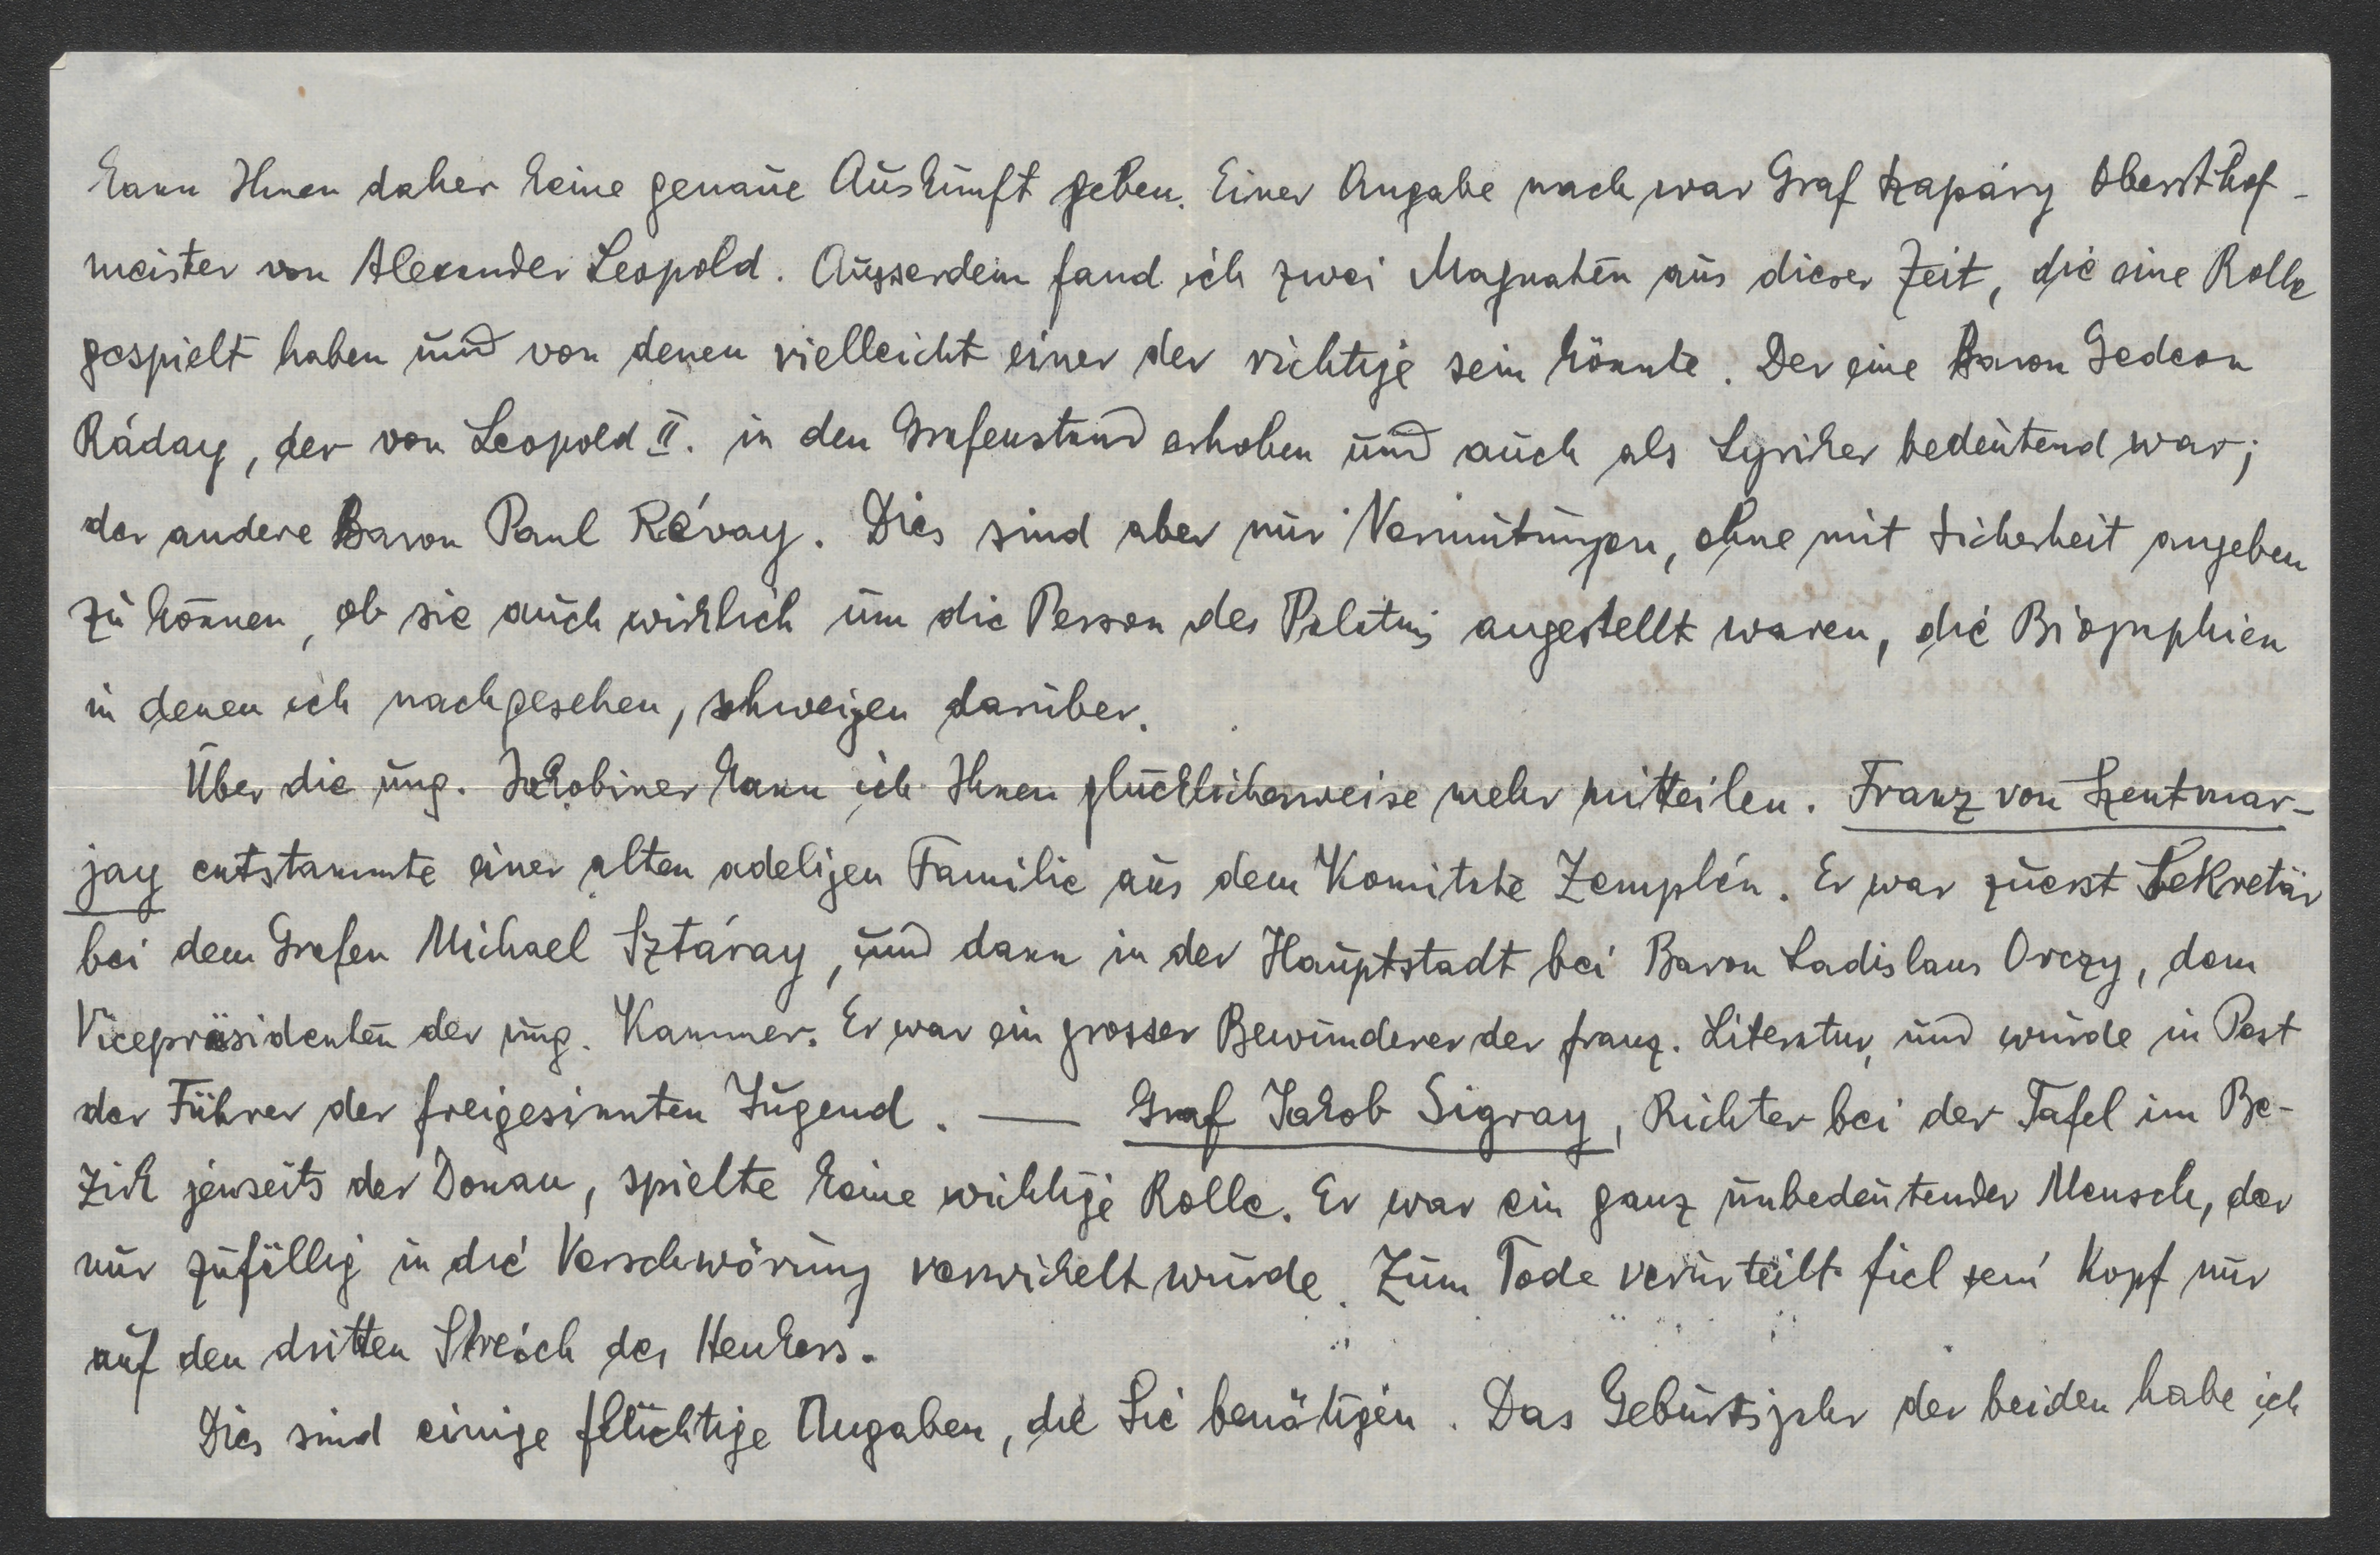 kann Ihnen daher keine genaue Auskunft geben. Einer Angabe nach war Graf Szapáry Obersthof-
meister von Alexander Leopold. Ausserdem fand ich zwei Magnaten aus dieser Zeit, die eine Rolle
gespielt haben und von denen vielleicht einer der richtige sein könnte. Der eine Baron Gedeon
Ráday, der von Leopold II. in den Grafenstand erhoben und auch als Lyriker bedeutend war;
der andere Baron Paul Révay. Dies sind aber nur Vermutungen, ohne mit Sicherheit angeben
zu können, ob sie auch wirklich um die Person des Palatins angestellt waren, die Biographien
in denen ich nachgesehen, schweigen darüber.
Über die ung. Jakobiner kann ich Ihnen glücklicherweise mehr mitteilen. Franz von Szentmar-
jay entstammte einer alten adeligen Familie aus dem Komitate Zemplén. Er war zuerst Sekretär
bei dem Grafen Michael Sztáray, und dann in der Hauptstadt bei Baron Ladislaus Orczy, dem
Vicepräsidenten der ung. Kammer. Er war ein grosser Bewunderer der franz. Literatur, und wurde in Pest
der Führer der freigesinnten Jugend. — Graf Jakob Sigray, Richter bei der Tafel im Be-
zirk jenseits der Donau, spielte keine wichtige Rolle. Er war ein ganz unbedeutender Mensch, der
nur zufällig in die Verschwörung verwickelt wurde. Zum Tode verurteilt fiel sein Kopf nur
auf den dritten Streich des Henkers.
Dies sind einige flüchtige Angaben, die Sie benötigen. Das Geburtsjahr der beiden habe ich